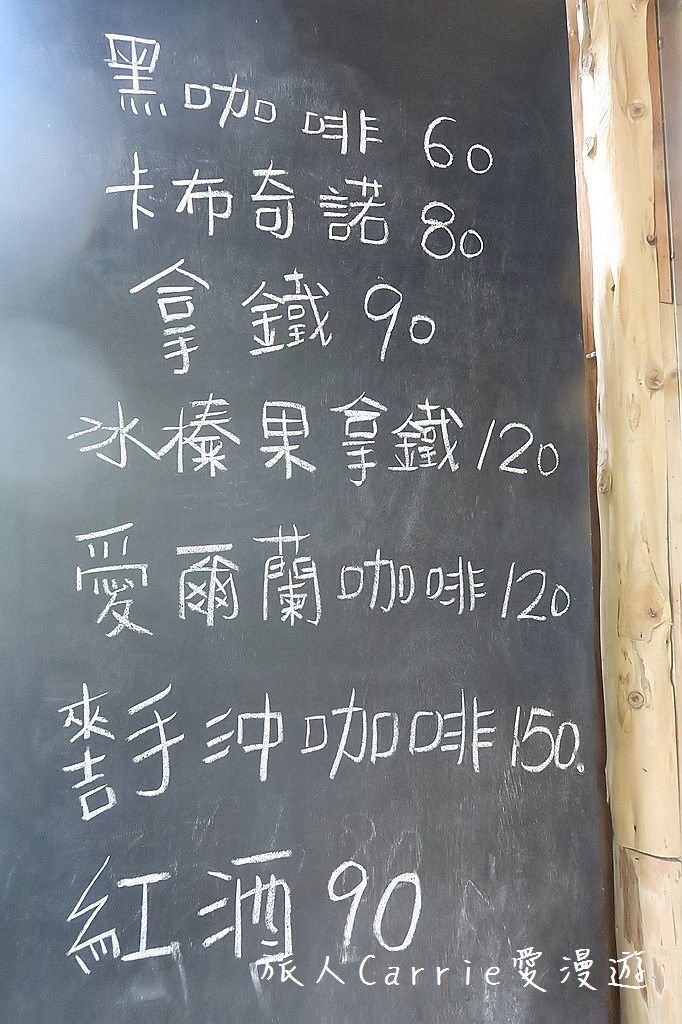 黑咖啡 60
卡布奇諾 80
拿鐵 90
冰榛果拿鐵 120
愛爾蘭咖啡 120
來吉手沖咖啡 150.
紅酒 90
旅人Carrie愛漫遊